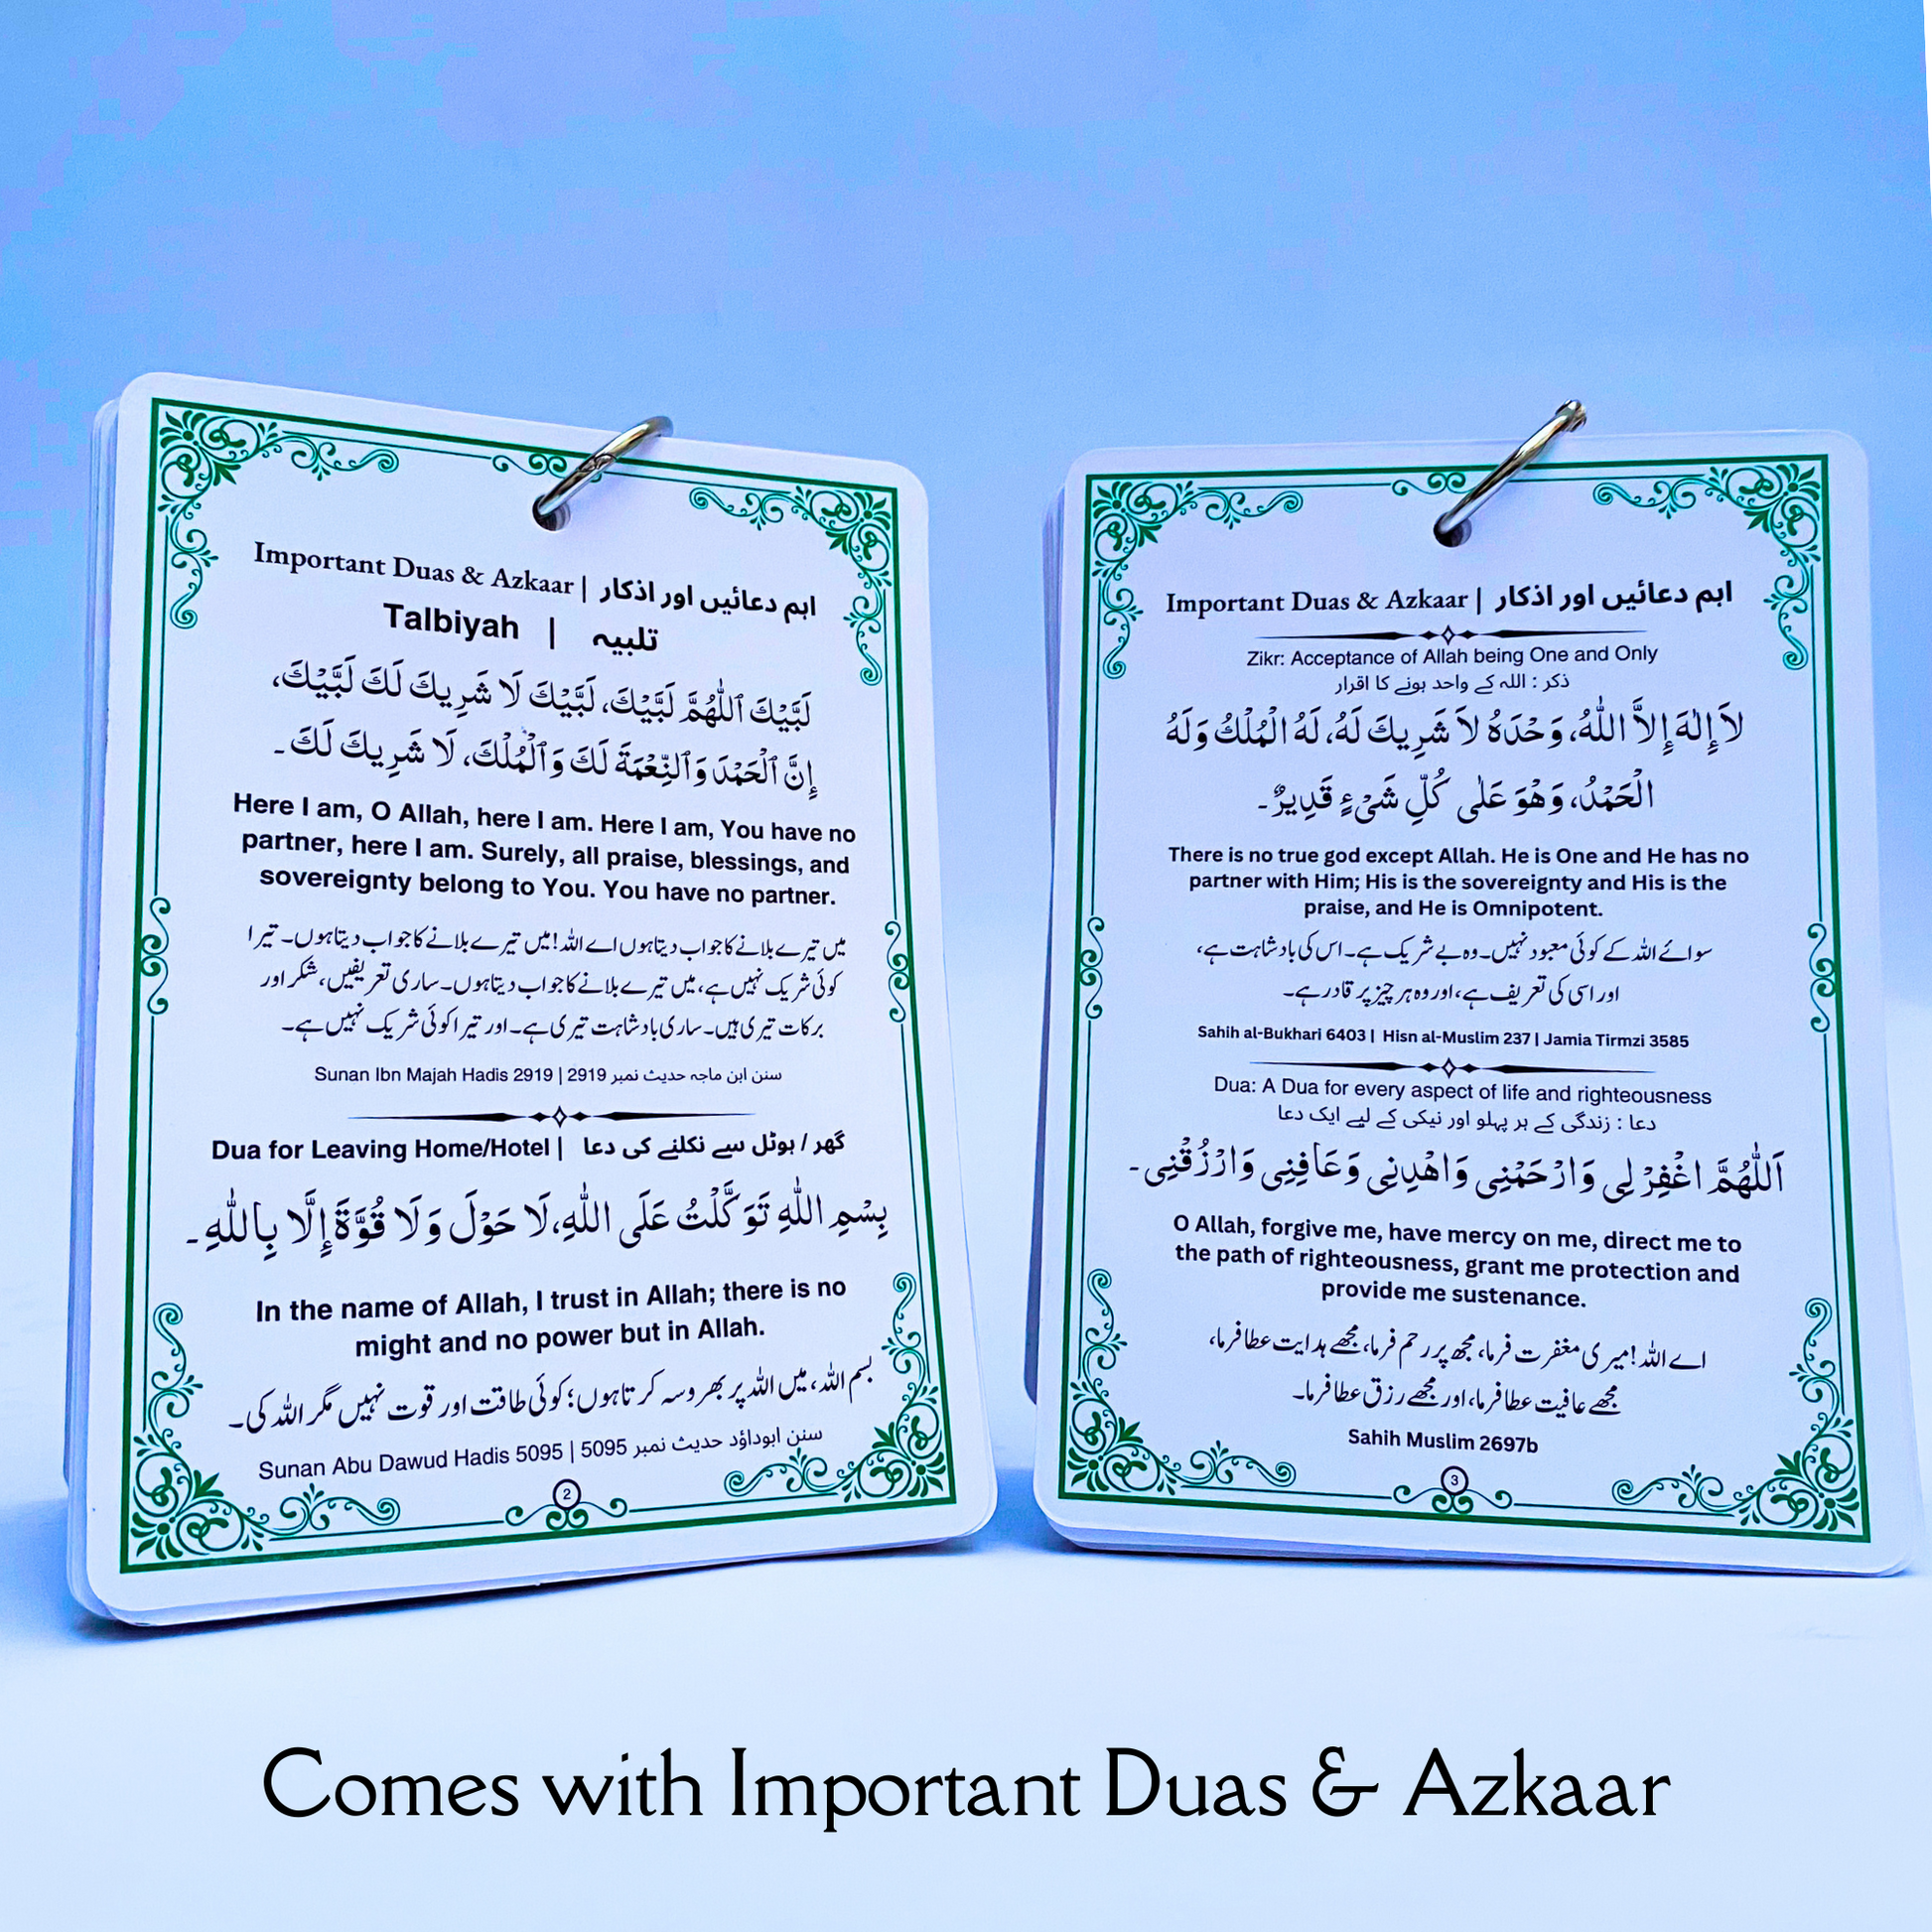 Important Duas & Azkaar | اہم دعائیں اور اذکار
Talbiyah | تلبیہ
لَبَّيْكَ ٱللّٰهُمَّ لَبَّيْكَ، لَبَّيْكَ لَا شَرِيكَ لَكَ لَبَّيْكَ،
إِنَّ ٱلْحَمْدَ وَٱلنِّعْمَةَ لَكَ وَٱلْمُلْكَ، لَا شَرِيكَ لَكَ۔
Here I am, O Allah, here I am. Here I am, You have no
partner, here I am. Surely, all praise, blessings, and
sovereignty belong to You. You have no partner.
میں تیرے بلانے کا جواب دیتا ہوں اے اللہ! میں تیرے بلانے کا جواب دیتا ہوں۔ تیرا
کوئی شریک نہیں ہے، میں تیرے بلانے کا جواب دیتا ہوں۔ ساری تعریفیں، شکر اور
برکات تیری ہیں۔ ساری بادشاہت تیری ہے۔ اور تیرا کوئی شریک نہیں ہے۔
Sunan Ibn Majah Hadis 2919 | سنن ابن ماجہ حدیث نمبر 2919
Dua for Leaving Home/Hotel | گھر / ہوٹل سے نکلنے کی دعا
بِسْمِ اللّٰهِ تَوَكَّلْتُ عَلَى اللّٰهِ، لَا حَوْلَ وَلَا قُوَّةَ إِلَّا بِاللّٰهِ۔
In the name of Allah, I trust in Allah; there is no
might and no power but in Allah.
بسم اللہ، میں اللہ پر بھروسہ کرتا ہوں؛ کوئی طاقت اور قوت نہیں مگر اللہ کی۔
Sunan Abu Dawud Hadis 5095 | سنن ابوداؤد حدیث نمبر 5095
2
Important Duas & Azkaar | اہم دعائیں اور اذکار
Zikr: Acceptance of Allah being One and Only
ذکر : اللہ کے واحد ہونے کا اقرار
لاَ إِلٰهَ إِلاَّ اللّٰهُ، وَحْدَهُ لاَ شَرِيكَ لَهُ، لَهُ الْمُلْكُ وَلَهُ
الْحَمْدُ، وَهُوَ عَلٰى كُلِّ شَىْءٍ قَدِيرٌ۔
There is no true god except Allah. He is One and He has no
partner with Him; His is the sovereignty and His is the
praise, and He is Omnipotent.
سوائے اللہ کے کوئی معبود نہیں۔ وہ بے شریک ہے۔ اس کی بادشاہت ہے،
اور اسی کی تعریف ہے، اور وہ ہر چیز پر قادر ہے۔
Sahih al-Bukhari 6403 | Hisn al-Muslim 237 | Jamia Tirmzi 3585
Dua: A Dua for every aspect of life and righteousness
دعا : زندگی کے ہر پہلو اور نیکی کے لیے ایک دعا
اَللّٰهُمَّ اغْفِرْ لِى وَارْحَمْنِى وَاهْدِنِى وَعَافِنِى وَارْزُقْنِى۔
O Allah, forgive me, have mercy on me, direct me to
the path of righteousness, grant me protection and
provide me sustenance.
اے اللہ! میری مغفرت فرما، مجھ پر رحم فرما، مجھے ہدایت عطا فرما،
مجھے عافیت عطا فرما، اور مجھے رزق عطا فرما۔
Sahih Muslim 2697b
3
Comes with Important Duas & Azkaar